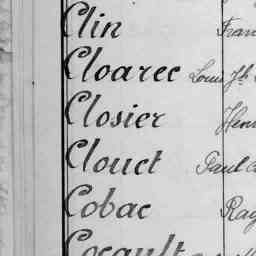 Clin Fran
Cloarec Louis Jh
Closier Hen
Clouet Paul
Cobac Ray
Cocault